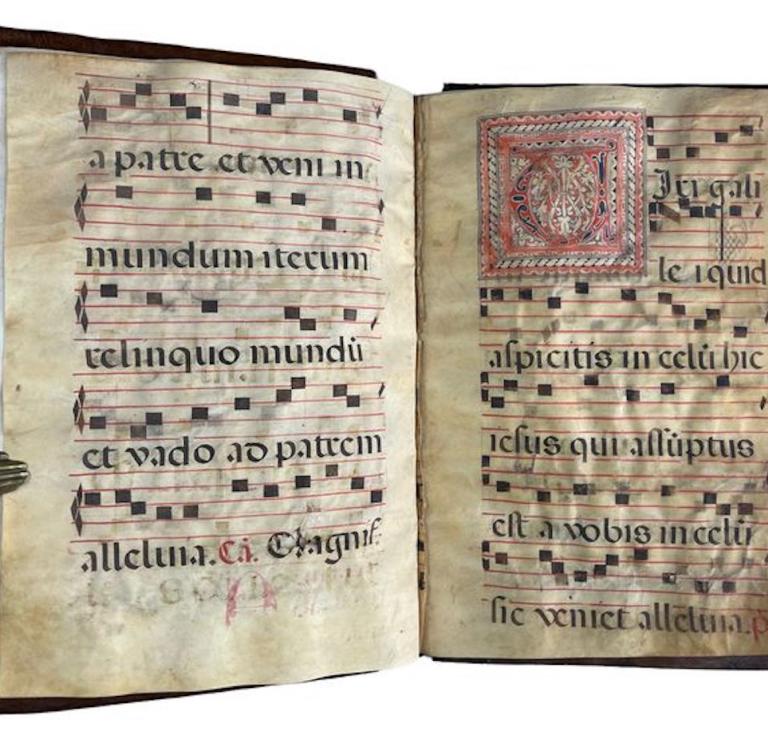 a patre et veni in
mundum iterum
relinquo mundũ
et vado ad patrem
alleluia. Ca. Magnif.
Uiri gali
le i quid
aspicitis in celũ hic
iesus qui assũptus
est a vobis in celũ
sic veniet alleluia. p